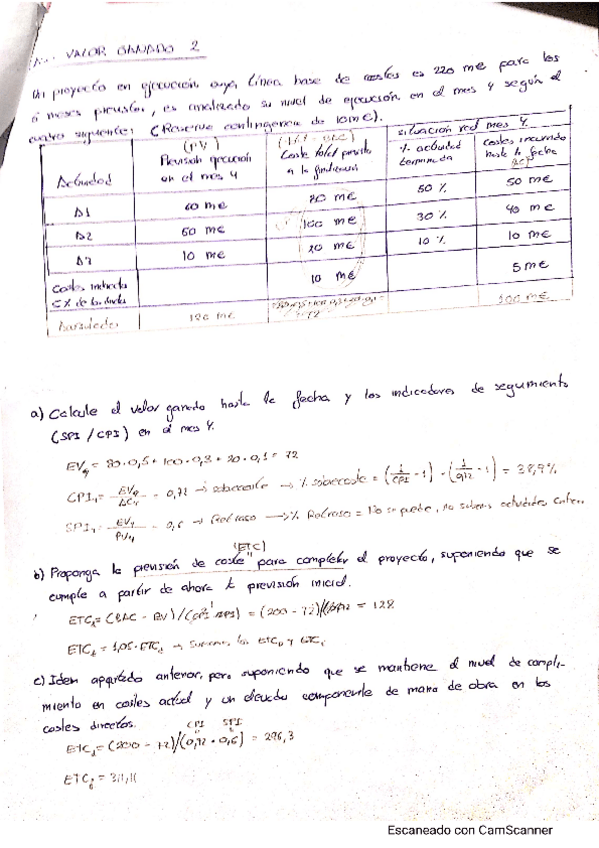 VALOR GANADO 2
proyecto en ejecución cuya línea base de costes es 220 m€ para los
6 meses previstos, es analizado su nivel de ejecución en el mes 4 según el
cuadro siguiente: (Reserva contingencia de 10m€).
Actividad
(PV)
Previsión ejecución
en el mes 4
Coste total previsto
a la finalización
situación real mes 4
% actividad
terminada
costes incurridos
hasta la fecha
A1 60 m€ 80 m€ 50 % 50 m€
A2 50 m€ 100 m€ 30 % 40 m€
A3 10 m€ 20 m€ 10 % 10 m€
Costes indirectos 10 m€ 5 m€
120 m€
a) Calcule el valor ganado hasta la fecha y los indicadores de seguimiento
(SPI / CPI) en el mes 4.
EV4 = 80·0,5 + 100·0,3 + 20·0,1 = 72
CPI4 = EV4 = 0,72 → sobrecoste → % sobrecoste = (1/CPI - 1) = (1/0,72 - 1) = 38,9%
SPI4 = EV4/PV4 = 0,6 → Retraso → % Retraso = No se puede, no sabemos
(ETC)
b) Proponga la previsión de coste para completar el proyecto, suponiendo que se
cumple a partir de ahora la previsión inicial.
= (200 - 72) = 128
c) Idem apartado anterior, pero suponiendo que se mantiene el nivel de cumpli-
miento en costes actual y un elevado componente de mano de obra en los
costes directos.
CPI SPI
= (200 - 72)/(0,72 · 0,6) = 296,3
Escaneado con CamScanner